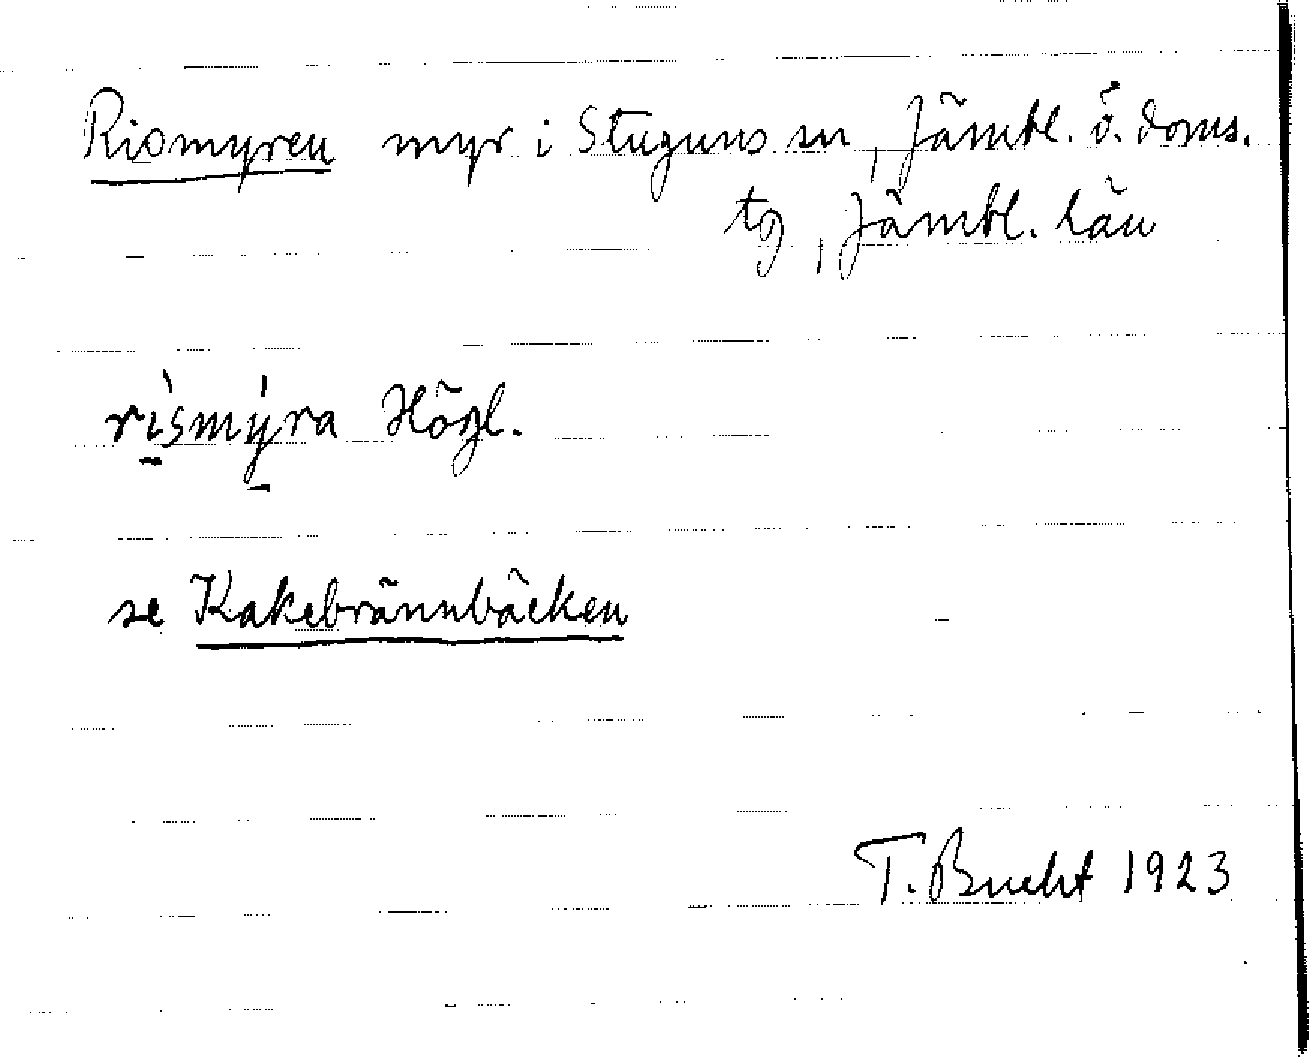 Rismyren myr i Stuguns sn, Jämtl. ö. doms.
tg, Jämtl. län
rìsmýra Högl.
se Kakebrännbäcken
T. Bucht 1923